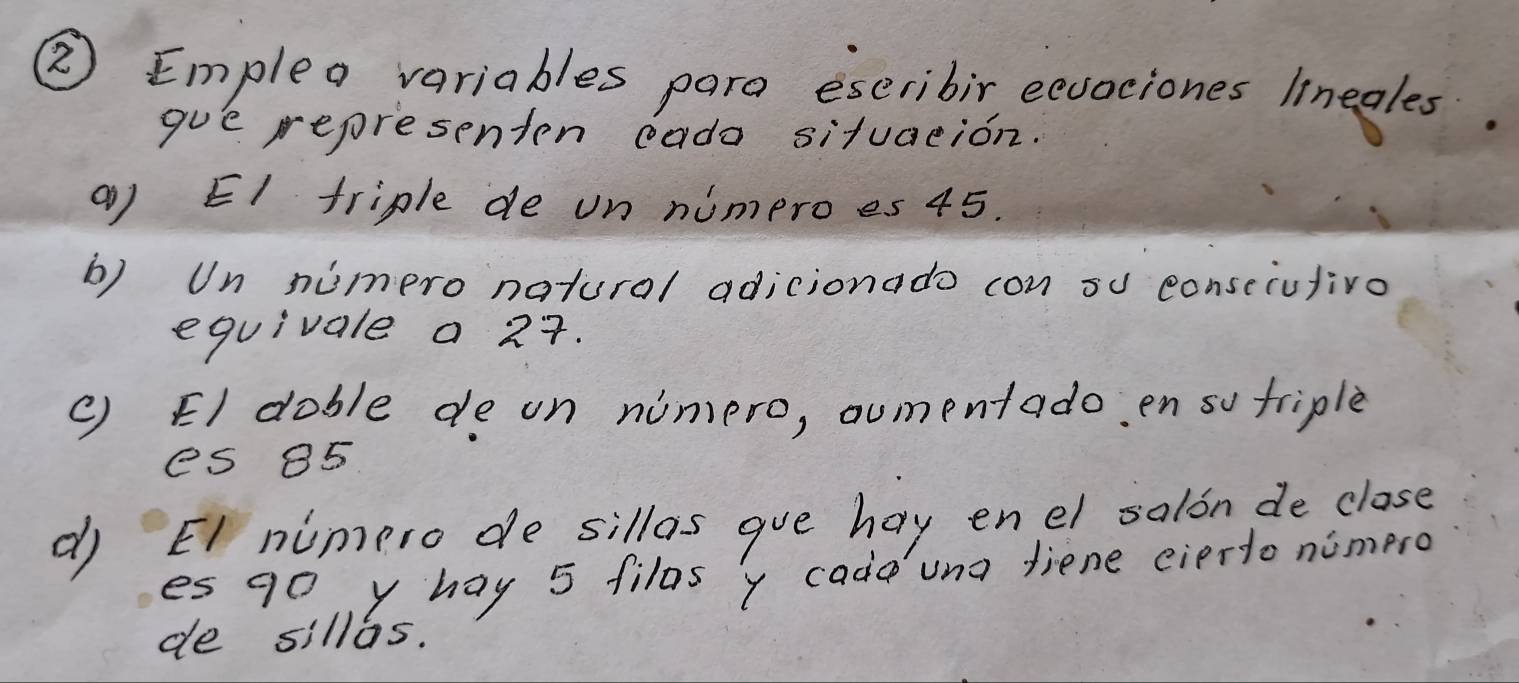 ② Emplea variables para escribir ecuaciones lineales
que representen cada situación.
a) El triple de un número es 45.
b) Un número natural adicionado con su consecutivo
equivale a 27.
c) El doble de un número, aumentado en su triple
es 85
d) El número de sillas que hay en el salón de clase
es 90 y hay 5 filas y cada una tiene cierto número
de sillas.